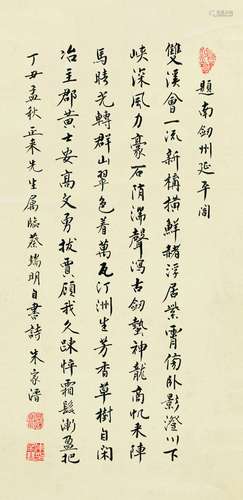 題南劒州延平閣
雙溪會一流新構橫鮮赭浮居紫霄傍臥影澄川下
峽深風力豪石隋湍聲瀉古劒蟄神龍高帆來陣
馬晴光轉群山翠色着萬瓦汀洲生芳香草樹自閑
冶主郡黃士安高文勇拔賈顧我久踈悴霜髮漸盈把
丁丑孟秋正來先生屬臨蔡端明自書詩 朱家溍